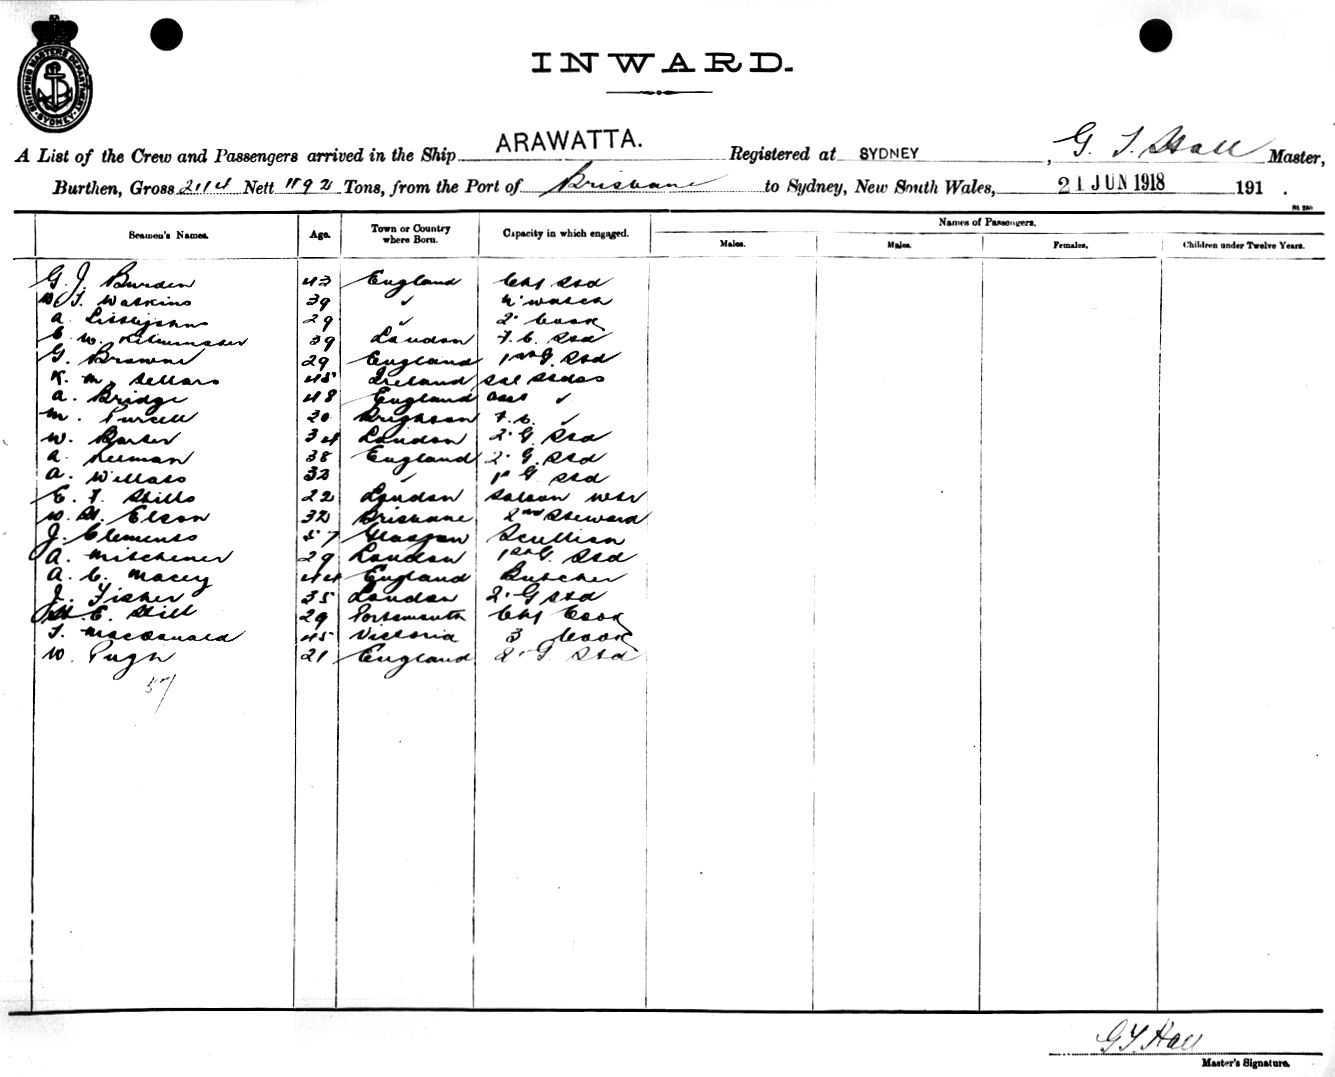 SHIPPING MASTER'S DEPARTMENT SYDNEY
INWARD.
A List of the Crew and Passengers arrived in the Ship ARAWATTA. Registered at SYDNEY, G. T. Hall Master,
Burthen, Gross 2114 Nett 1192 Tons, from the Port of Brisbane to Sydney, New South Wales, 21 JUN 1918 191 .
Names of Passengers.
Seamen's Names. Age. Town or Country where Born. Capacity in which engaged. Males. Males. Females. Children under Twelve Years.
G. J. Burden 43 England Chf Std
W. T. Watkins 39 ✓ N' watch
A. Littlejohn 29 ✓ 2' Cook
C. W. 39 London F. C. Std
G. Browne 29 England 1st G. Std
K. M. Sellars 45 Ireland Sal Stdess
A. Bridge 48 England Asst ✓
M. Purcell 30 Brighton F. C. ✓
W. Barber 34 London 2' G. Std
A. 38 England 2' G. Std
A. 32 ✓ 1st G Std
E. F. Stills 22 London Saloon Wtr
W. H. Elson 32 Brisbane 2nd Steward
J. Clements 57 Glasgow Scullion
A. Mitchener 29 London 1st G. Std
A. C. Macey 44 England Butcher
J. Fisher 35 London 2' G Std
H. E. Hill 29 Portsmouth Chf Cook
T. MacDonald 45 Victoria 3 Cook
W. Pugh 21 England 2' G Std
57
G T Hall
Master's Signature.